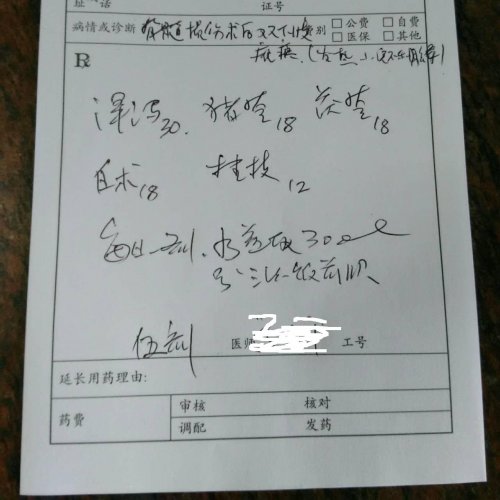 证号
病情或诊断 脊髓损伤术后双下肢 别 □公费 □自费
□医保 □其他
瘫痪
R
泽泻30 猪苓18 茯苓18
白术18 桂枝12
每日一剂 水煎取300ml
分三次饭前服
伍剂 医师 工号
延长用药理由:
药费 审核 核对
调配 发药